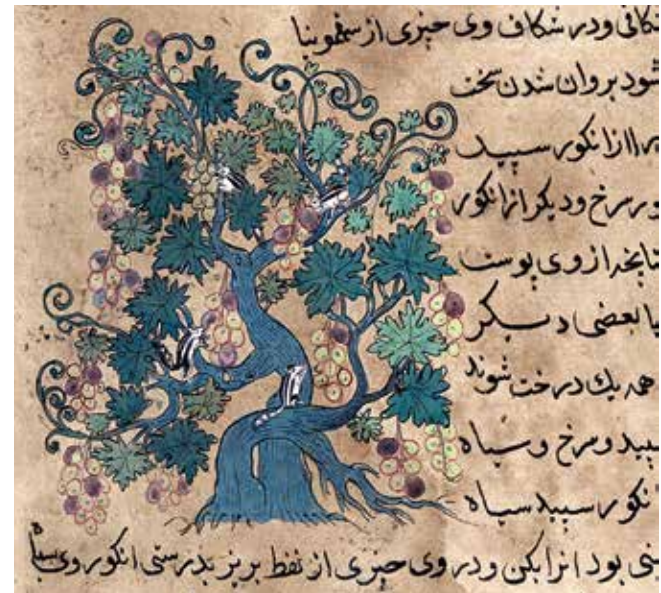 شکافی ودر شکاف وی حیزی از سقمونیا
شود بروان شدن سخت
را از انکور سپید
ور سرخ ودیکر از انکور
تا بخه از وی پوست
یا بعضی دیکر
همه یك درخت شوند
سپید وسرخ وسیاه
انکور سپید سیاه
بنی بود انرا بکن ودر وی حیزی از نفط بریز بدرستی انکور وی سیاه